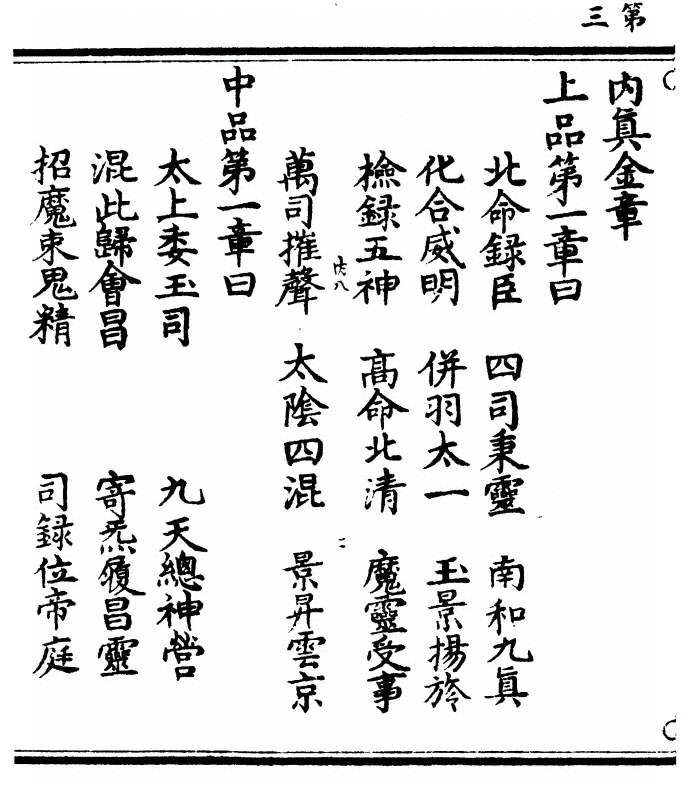 第三
内眞金章
上品第一章曰
北命録臣　四司秉靈　南和九眞
化合威明　併羽太一　玉景揚旍
檢録五神　高命北清　魔靈受事
萬司摧聲　太陰四混　景昇雲京
中品第一章曰
太上委玉司　九天總神營
混此歸會昌　寄炁履昌靈
招魔束鬼精　司録位帝庭